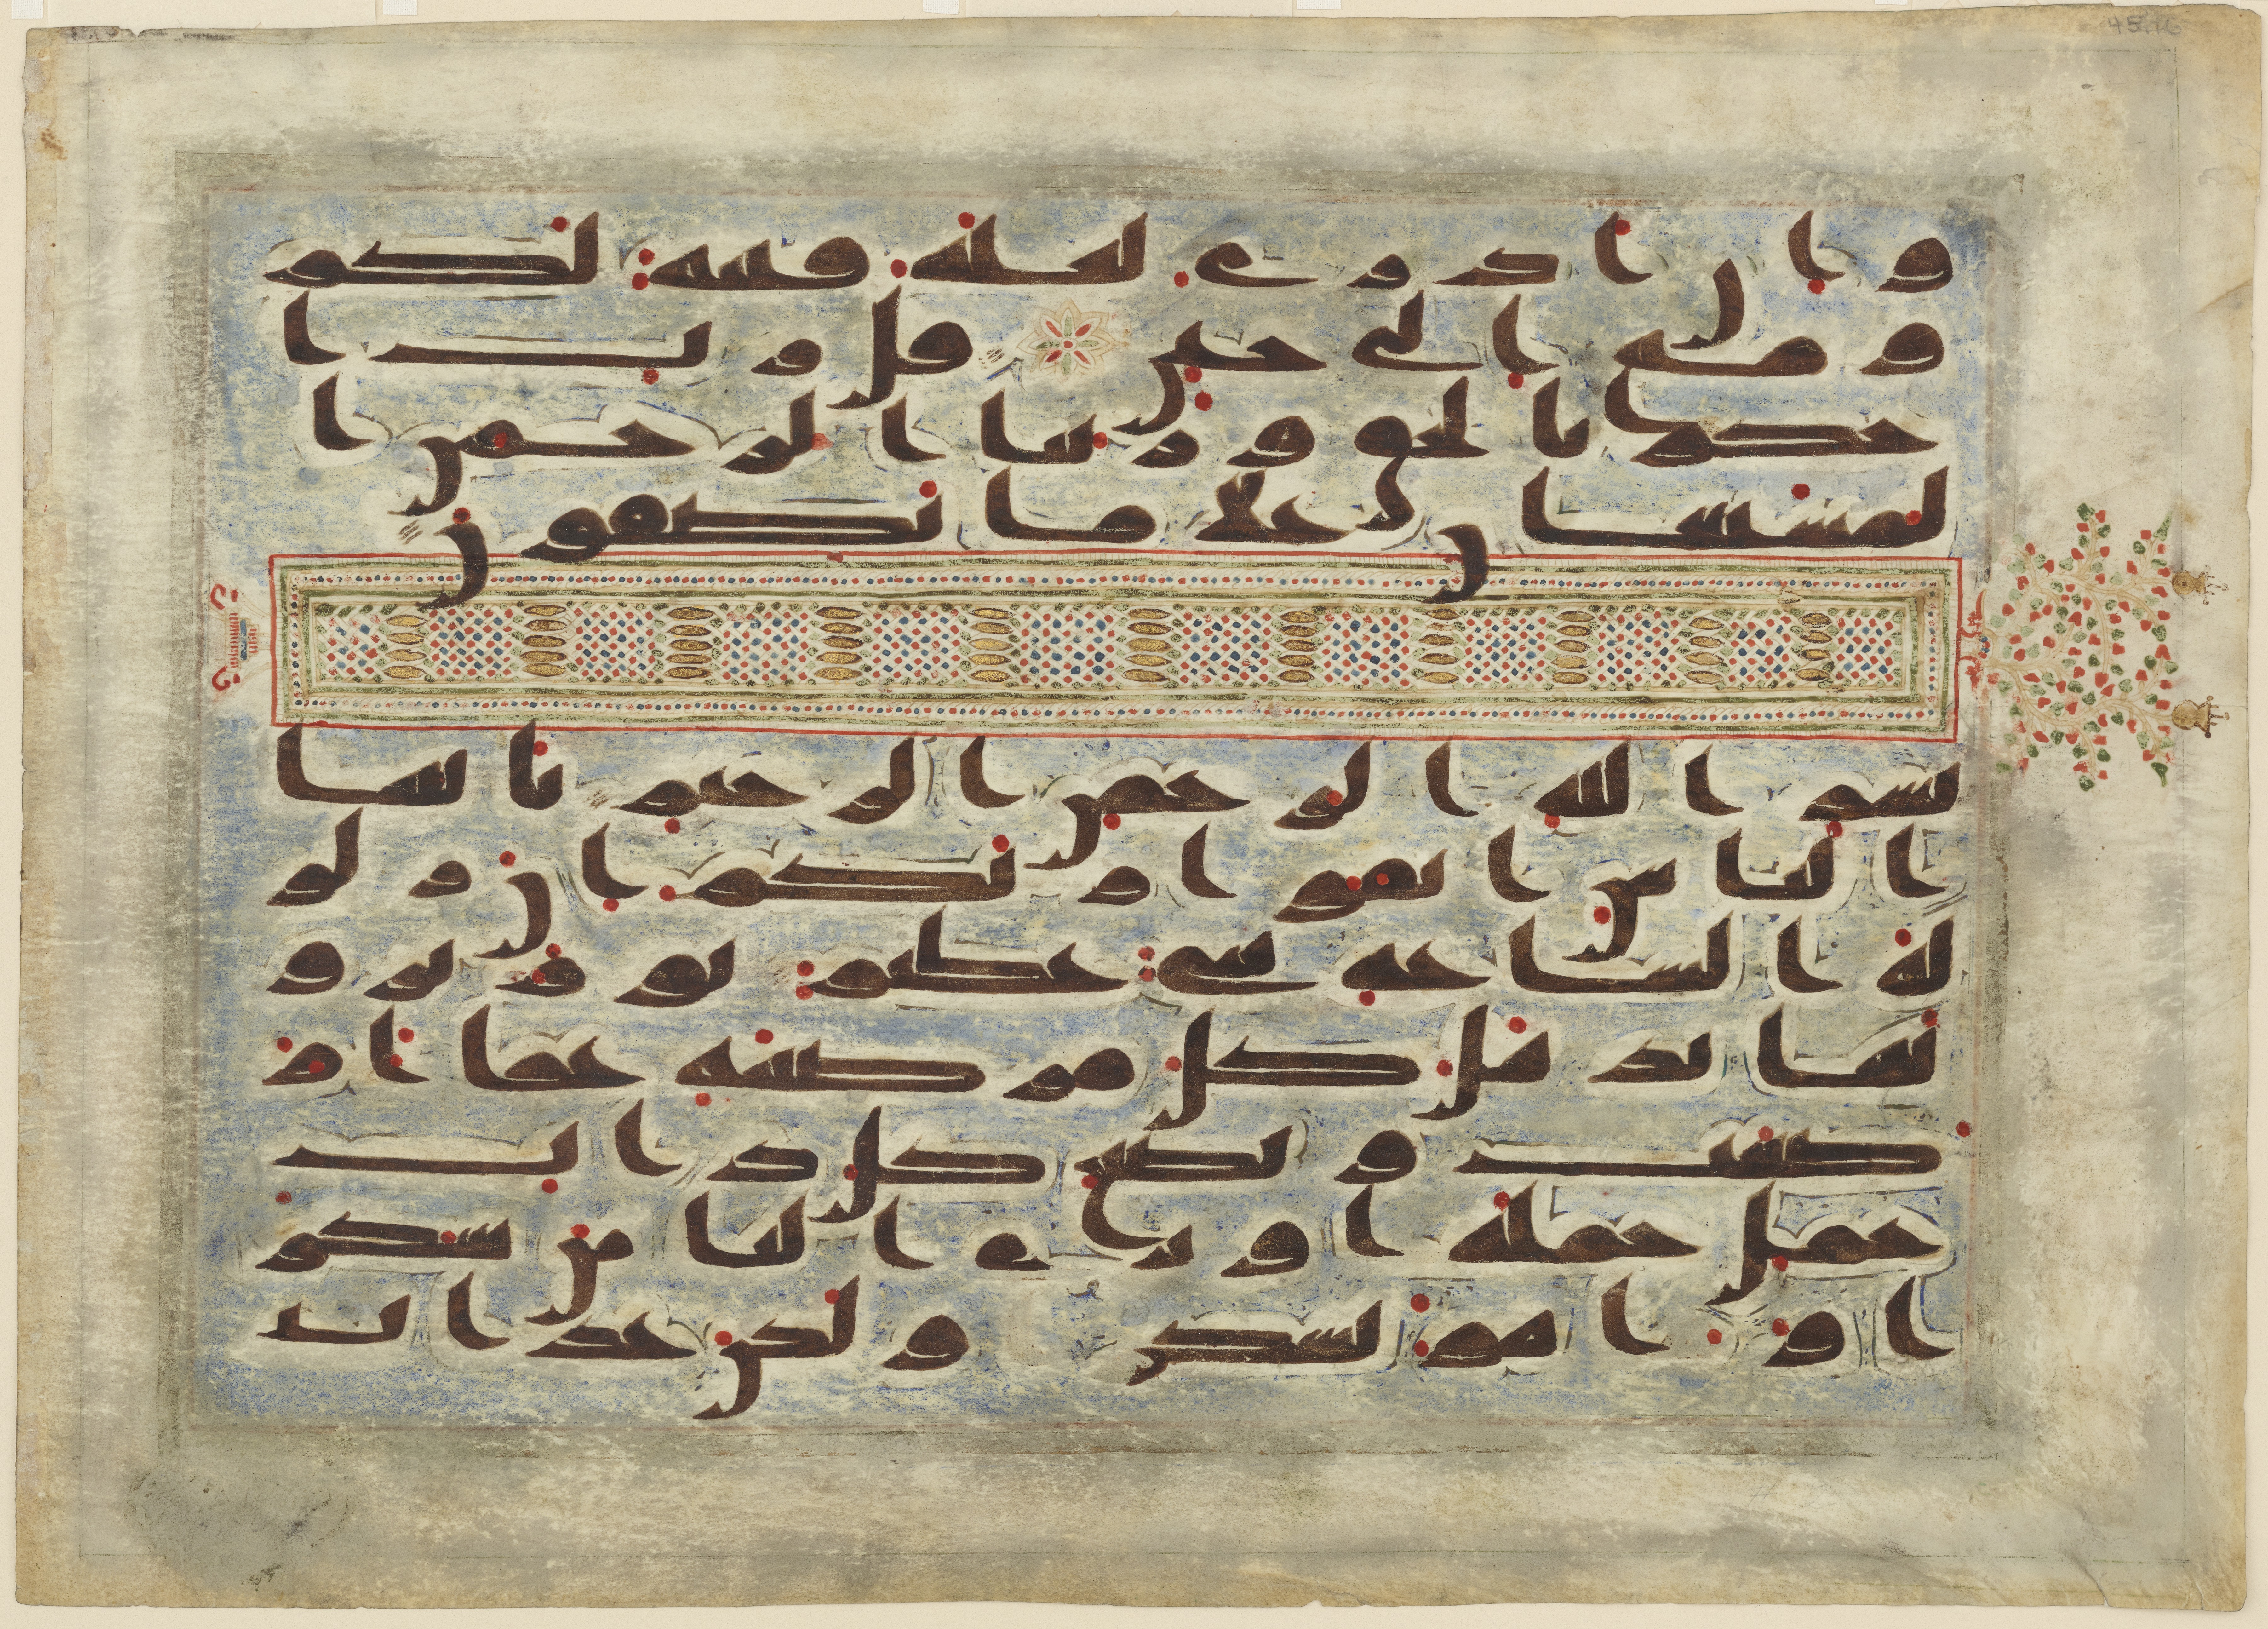 45.16
وان ادري لعله فتنة لكم
ومتع الى حين قل رب ا
حكم بالحق وربنا الرحمن ا
لمستعان على ما تصفون
بسم الله الرحمن الرحيم يايها
الناس اتقوا ربكم ان زلز
لة الساعة شي عظيم يوم ترو
نها تذهل كل مرضعة عما ار
ضعت وتضع كل ذات
حمل حملها وترى الناس سكر
ى وما هم بسكرى ولكن عذاب